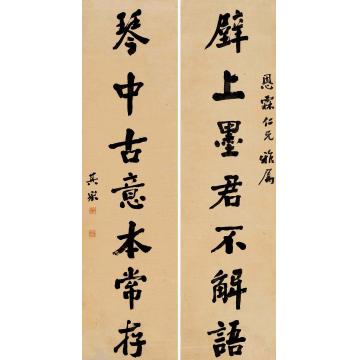 恩霖仁兄雅屬
壁上墨君不解語
琴中古意本常存